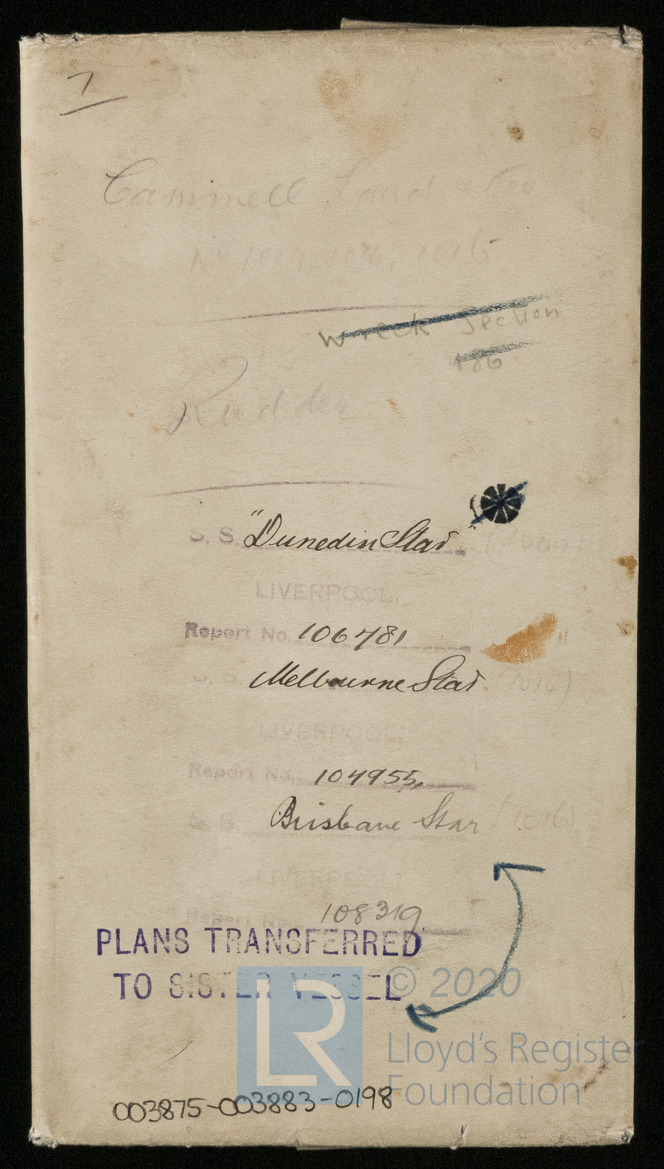 1
Cammell Laird & Co
Wreck Section
186
Rudder
S. S. "Dunedin Star"
LIVERPOOL.
Report No. 106781
S. S. Melbourne Star
LIVERPOOL.
Report No. 104955
S. S. Brisbane Star (1016)
LIVERPOOL.
Report No. 108319
PLANS TRANSFERRED
TO SISTER VESSEL
LR © 2020
Lloyd's Register
Foundation
003875-003883-0198